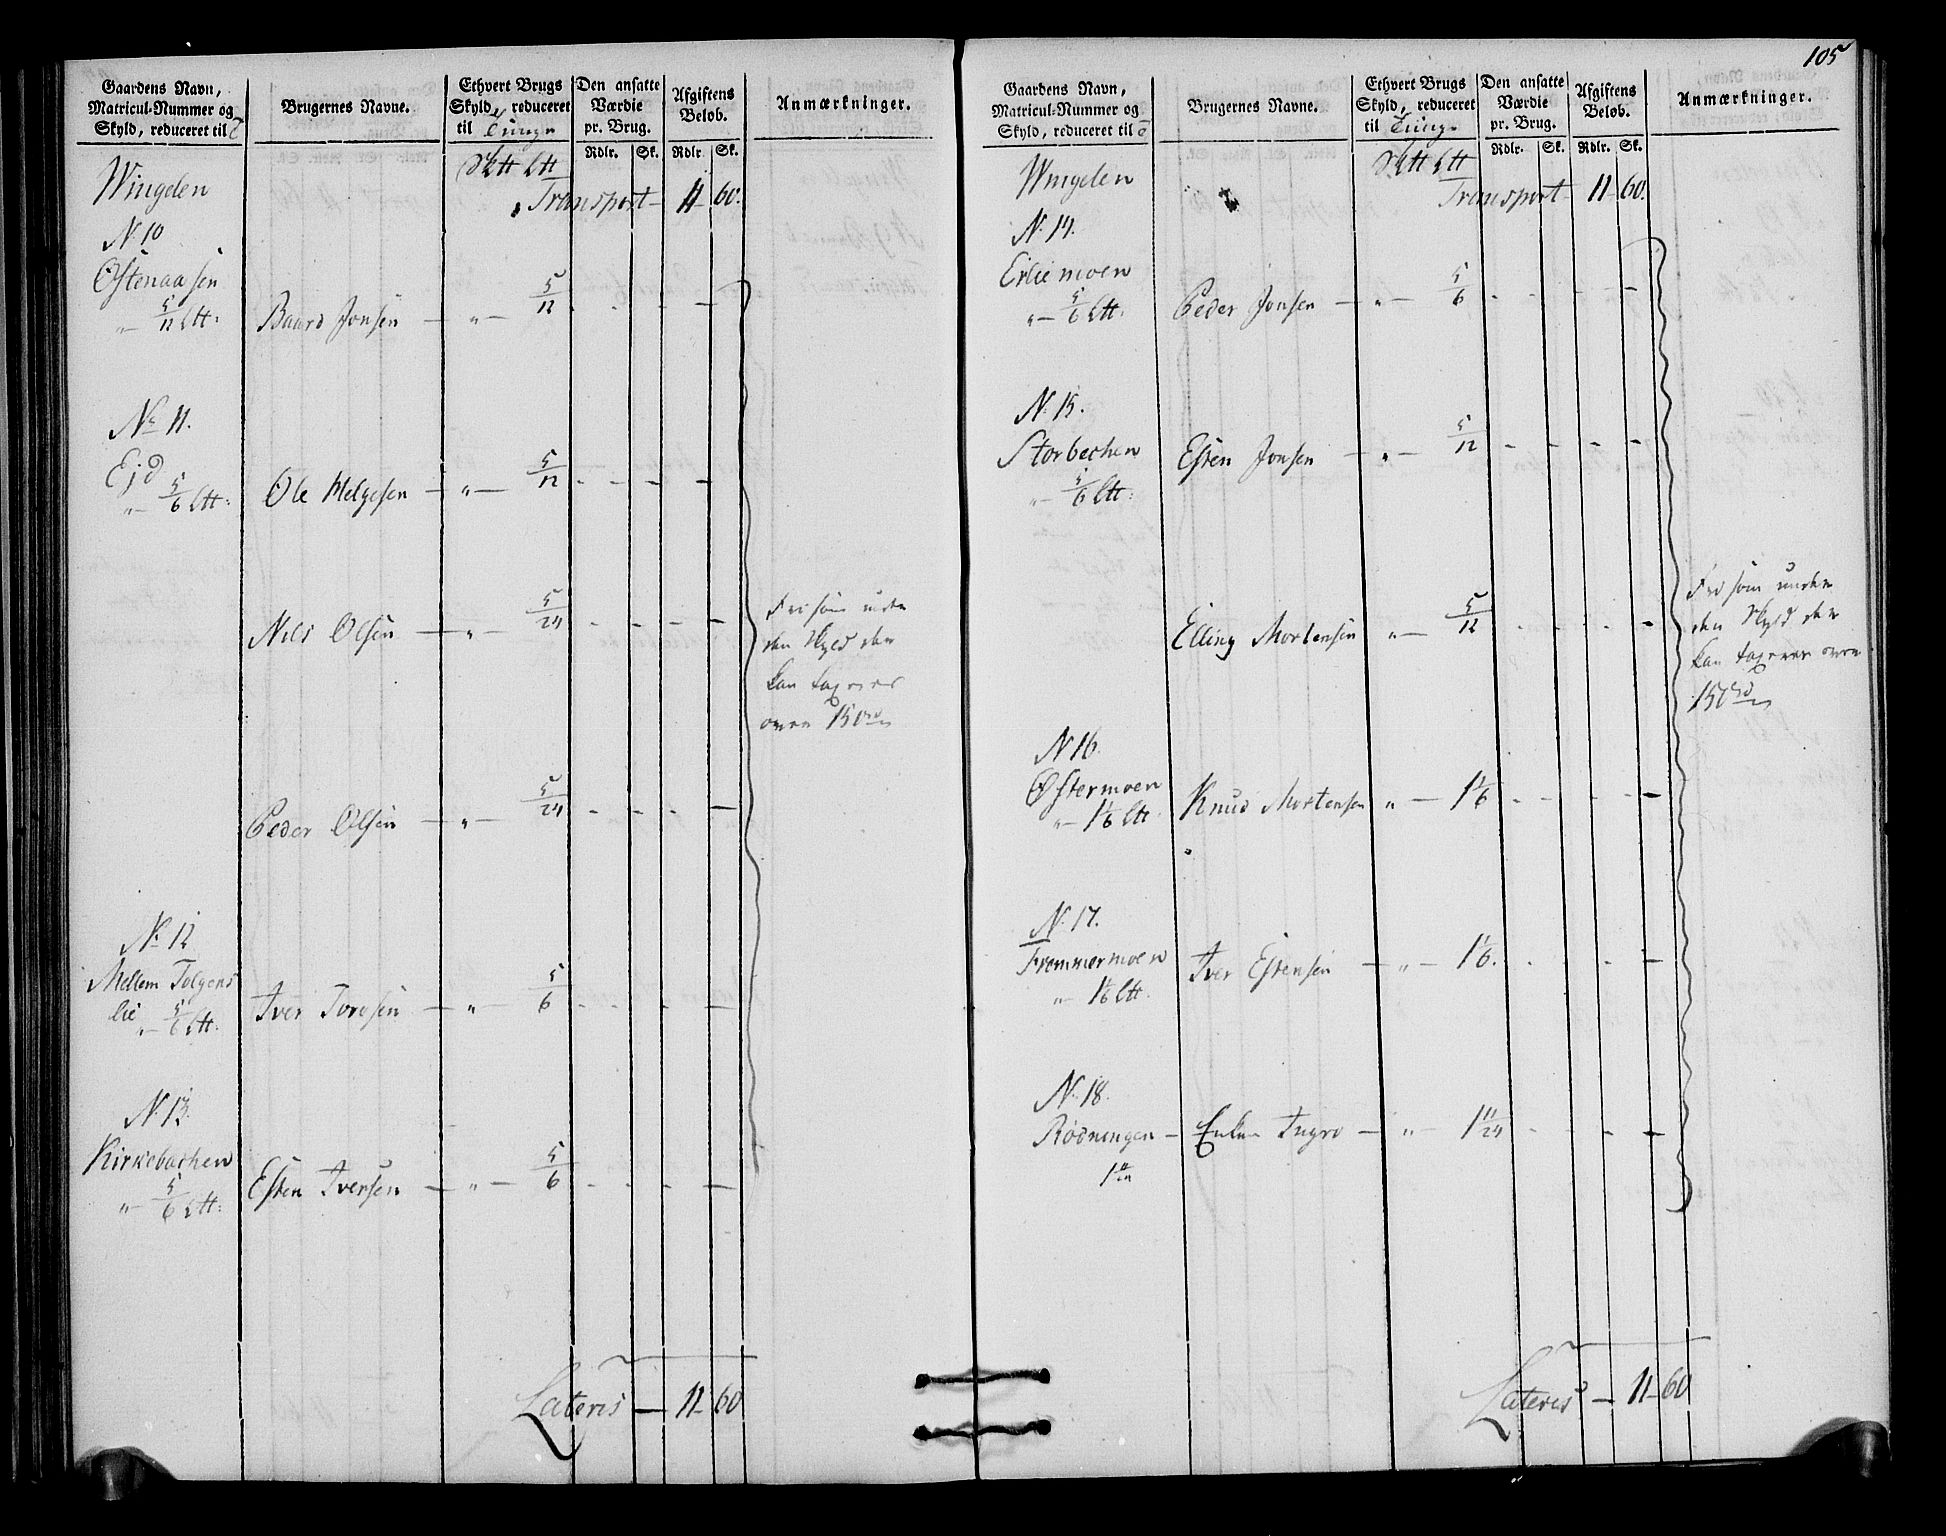 105
Gaardens Navn,
Matricul-Nummer og
Skyld, reduceret til
Brugernes Navne.
Ethvert Brugs
Skyld, reduceret
til Tunge
Den ansatte
Værdie
pr. Brug.
Rdlr. Sk.
Afgiftens
Beløb.
Rdlr. Sk.
Anmærkninger.
Wingelen
Transport 11 60.
N. 10
Østenaasen
" 5/12 L℔. Baard Jonsen — " — 5/12 - - - -
No. 11.
Ejd
" 5/6 L℔. Ole Helgesen — " — 5/12 - - - -
Nils Olsen — " — 5/24 - - - -
Fri som under
den Skyld der
kan taxeres
over 150
Peder Olsen — " — 5/24 - - - -
No. 12
Mellem Tolgens
lie " 5/6 L℔. Iver Toresen — " — 5/6 - - - -
N. 13.
Kirkebachen
" 5/6 L℔. Esten Iversen — " — 5/6 - - - -
Lateris — 11 60
Gaardens Navn,
Matricul-Nummer og
Skyld, reduceret til
Brugernes Navne.
Ethvert Brugs
Skyld, reduceret
til Tunge
Den ansatte
Værdie
pr. Brug.
Rdlr. Sk.
Afgiftens
Beløb.
Rdlr. Sk.
Anmærkninger.
Wingelen
Transport 11 60.
N. 14.
Erliemoen
" 5/6 L℔. Peder Jonsen — " — 5/6 - - - -
N. 15.
Storbechen
" 5/6 L℔. Esten Jonsen — " — 5/12 - - - -
Elling Mortensen " — 5/12 - - - -
Fri som under
den Skyld der
kan taxeres over
150
N 16.
Østermoen
" 1 1/6 L℔. Knud Mortensen " — 1 1/6 - - - -
N. 17.
Frommermoen
" 1 1/6 L℔. Iver Estensen — " — 1 1/6. - - -
N. 18.
Rødningen — Enken — " — 1 11/24 - - -
Lateris — 11 60